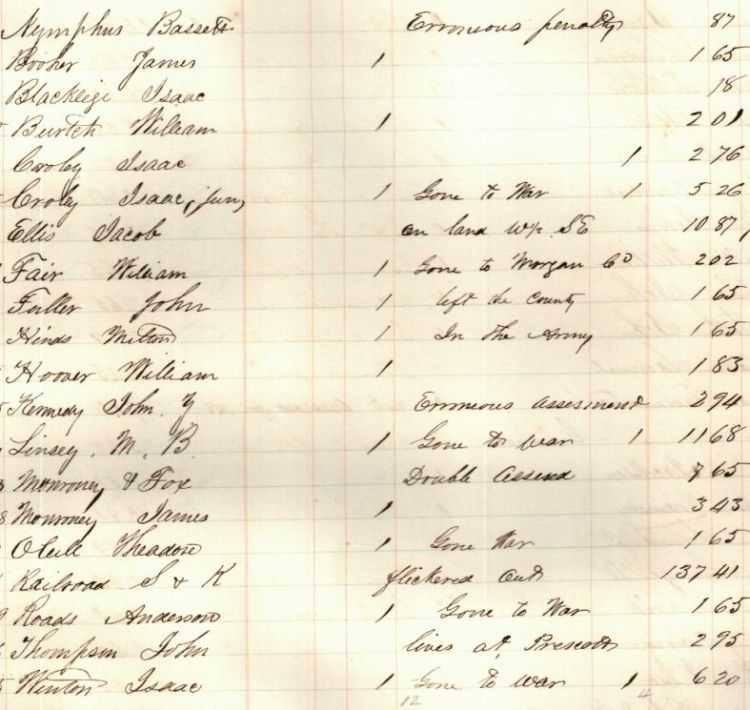 Nymphus Bassett Erroneous penalty 87
Booher James 1 1 65
Blacklige Isaac 18
Burtch William 1 2 01
Croley Isaac 1 2 76
Croley Isaac, Jun, 1 Gone to War 1 5 26
Ellis Jacob on land W½ SE 10 87
Fair William 1 Gone to Morgan Co 2 02
Fuller John 1 left the County 1 65
Hinds Milton 1 In the Army 1 65
Hoover William 1 1 83
Kennedy John Y Erroneous Assesment 2 94
Linsey. M. B. 1 Gone to war 1 11 68
Monroney & Fox Double Assesd 7 65
8 Monroney James 1 3 43
Theadore 1 Gone War 1 65
Railroad S & K flickered Out 137 41
9 Roads Anderson 1 Gone to War 1 65
Thompson John lives at Prescott 2 95
5 Winton Isaac 1 Gone to war 1 6 20
12 4